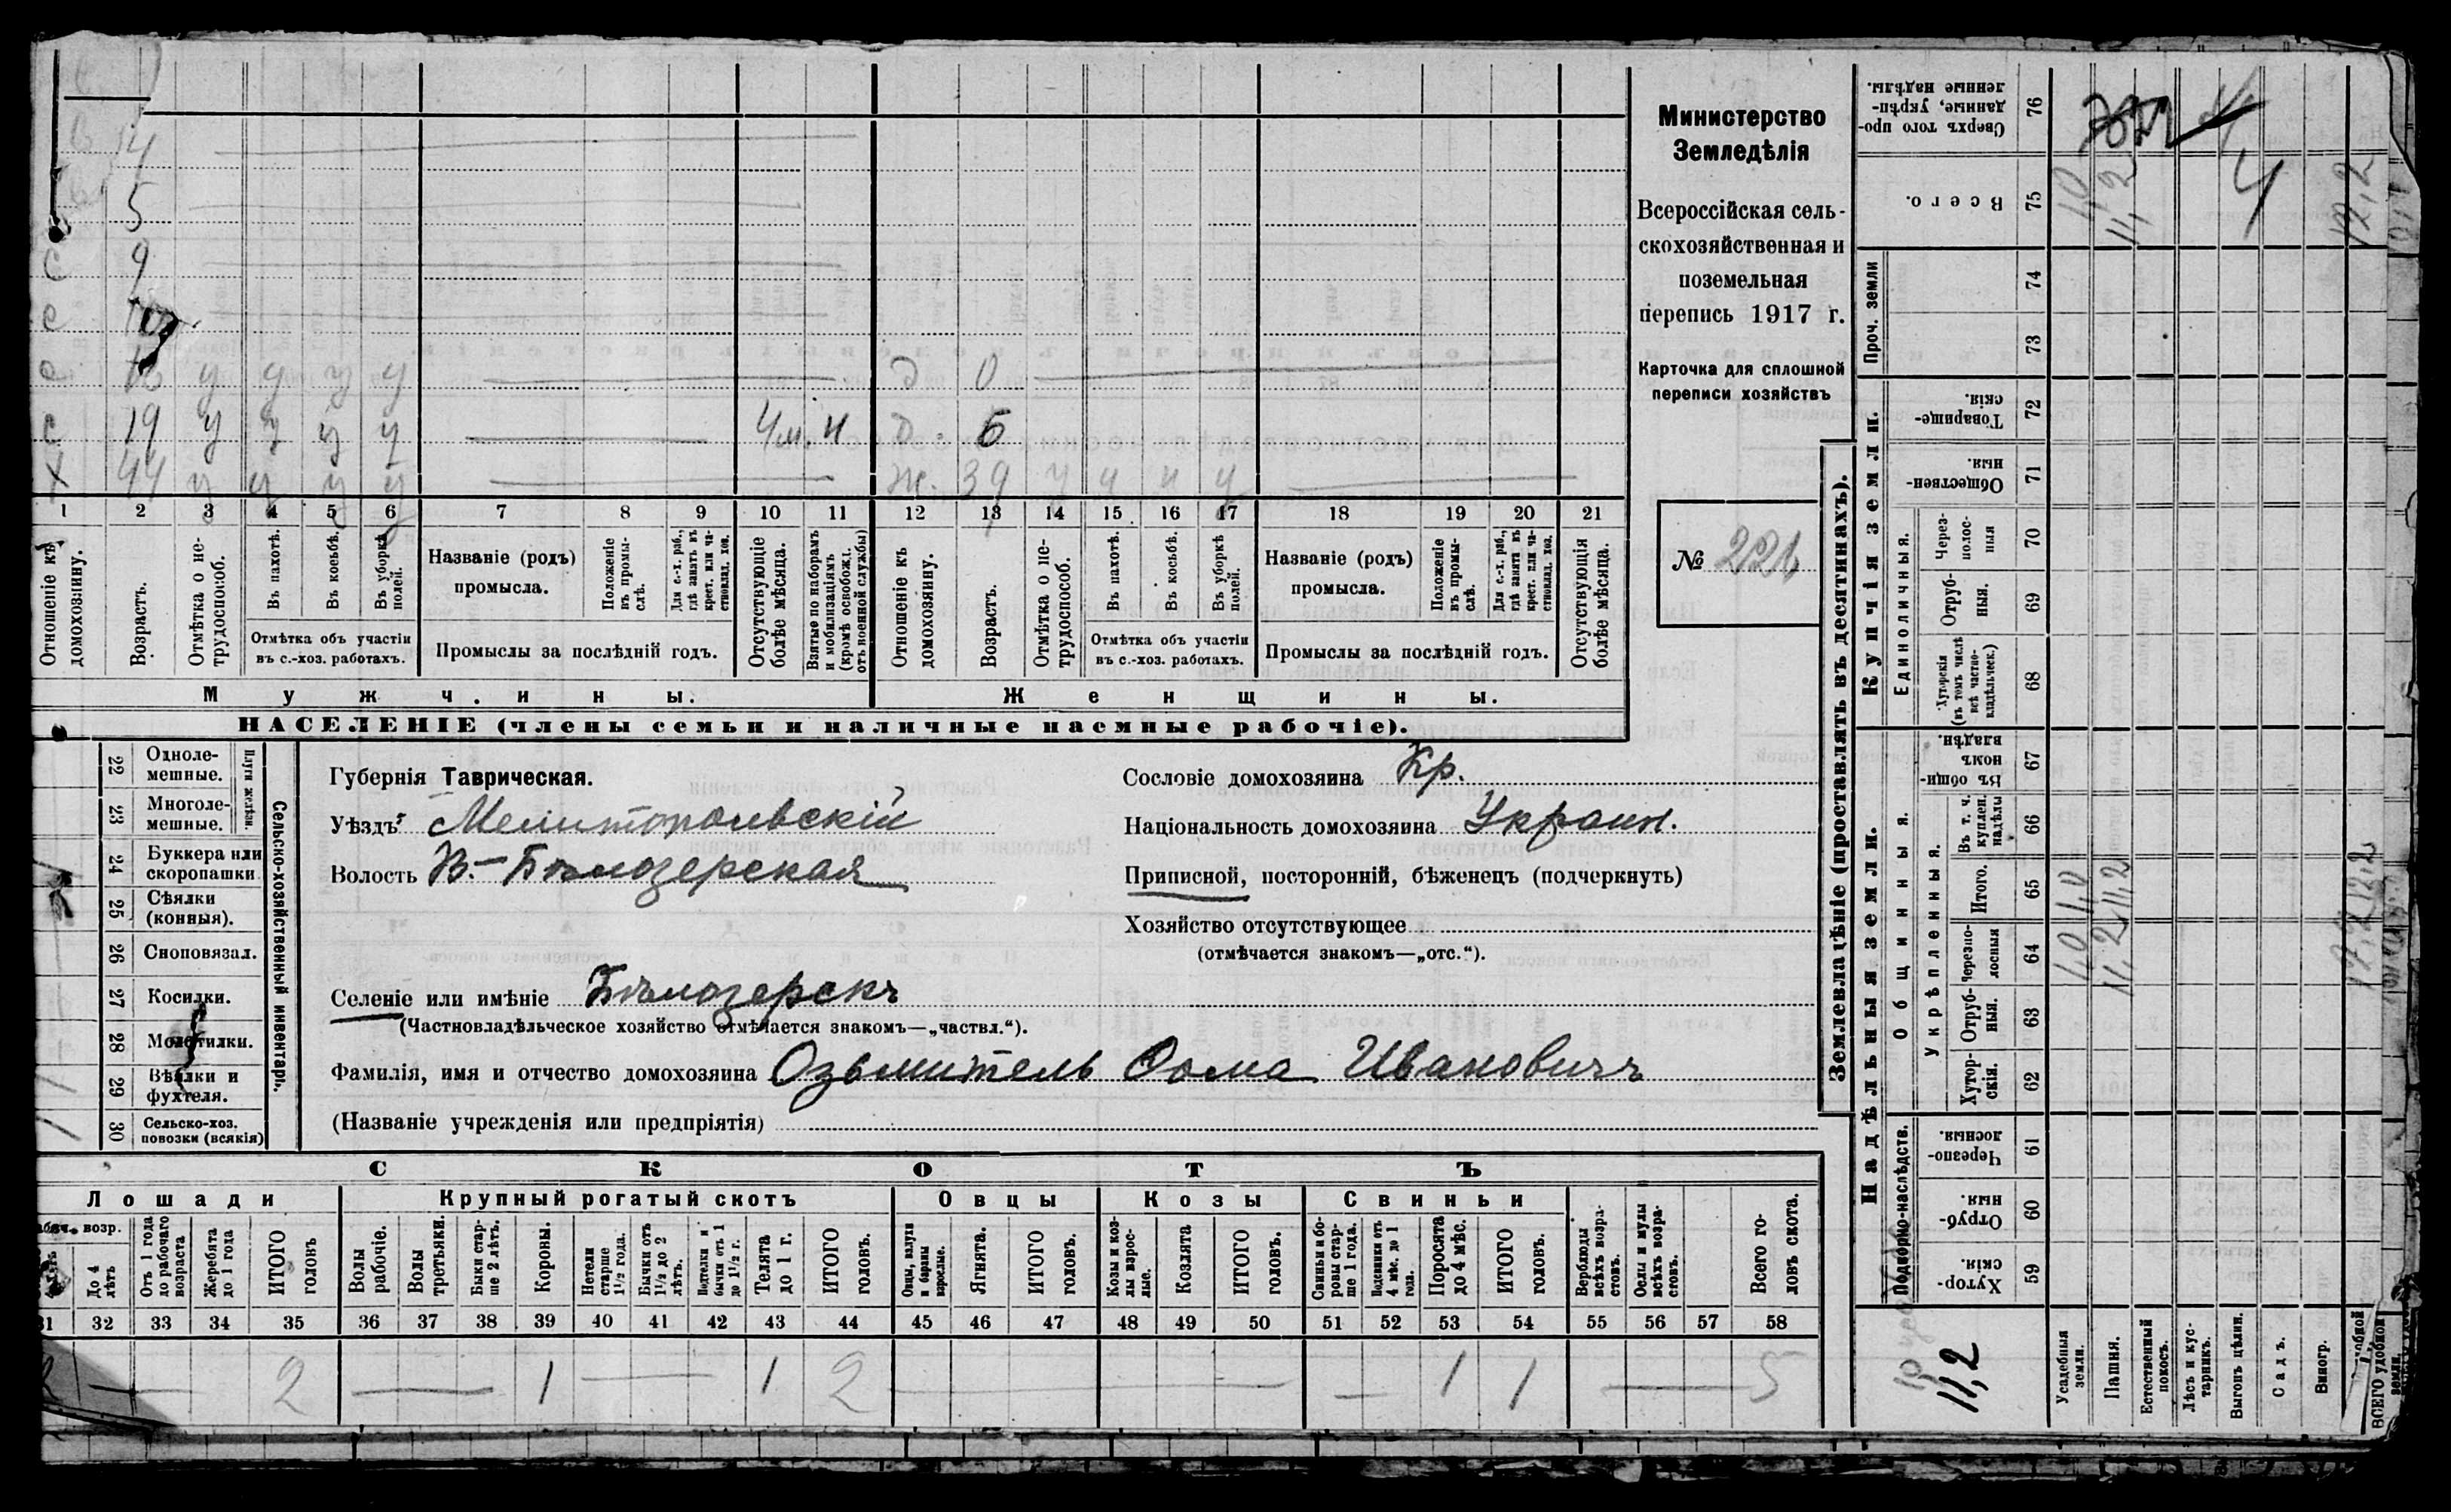 Министерство
Земледѣлія
Всероссійская сель-
скохозяйственная и
поземельная
перепись 1917 г.
Карточка для сплошной
переписи хозяйствъ
№ 221
4
5
9
с 19 у у у у 4 м. н д. 6
х 44 у у у у ж. 39 у у н у
1 2 3 4 5 6 7 8 9 10 11 12 13 14 15 16 17 18 19 20 21
Отношеніе къ домохозяину.
Возрастъ.
Отмѣтка о не-трудоспособ.
Въ пахотѣ.
Въ косьбѣ.
Въ уборкѣ полей.
Отмѣтка объ участіи
въ с.-хоз. работахъ.
Названіе (родъ)
промысла.
Положеніе въ промы-слѣ.
Для с.-х. раб., гдѣ занятъ въ крест. или ча-стновлад. хоз.
Промыслы за послѣдній годъ.
Отсутствующіе болѣе мѣсяца.
Взятые по наборамъ и мобилизаціямъ (кромѣ освобожд. отъ военной службы)
Отношеніе къ домохозяину.
Возрастъ.
Отмѣтка о не-трудоспособ.
Въ пахотѣ.
Въ косьбѣ.
Въ уборкѣ полей.
Отмѣтка объ участіи
въ с.-хоз. работахъ.
Названіе (родъ)
промысла.
Положеніе въ промы-слѣ.
Для с.-х. раб., гдѣ занятъ въ крест. или ча-стновлад. хоз.
Промыслы за послѣдній годъ.
Отсутствующія болѣе мѣсяца.
Мужчины.
Женщины.
НАСЕЛЕНІЕ (члены семьи и наличные наемные рабочіе).
22 Одноле-мешные.
23 Многоле-мешные.
Плуги желѣзн.
24 Буккера или скоропашки
25 Сѣялки (конныя).
26 Сноповязал.
27 Косилки.
28 Молотилки.
29 Вѣялки и фухтеля.
30 Сельско-хоз. повозки (всякія)
Сельско-хозяйственный инвентарь.
Губернія Таврическая.
Уѣздъ Мелитопольскій
Волость В.-Бѣлозерская
Сословіе домохозяина Кр.
Національность домохозяина Украин.
Приписной, посторонній, бѣженецъ (подчеркнуть)
Хозяйство отсутствующее
(отмѣчается знакомъ—„отс.“).
Селеніе или имѣніе Бѣлозерскъ
(Частновладѣльческое хозяйство отмѣчается знакомъ—„частвл.“).
Фамилія, имя и отчество домохозяина Озьмитель Фома Ивановичъ
(Названіе учрежденія или предпріятія)
СКОТЪ
Лошади
Крупный рогатый скотъ
Овцы
Козы
Свиньи
До 4 лѣтъ
Отъ 1 года до рабочаго возраста
Жеребята до 1 года
ИТОГО головъ
Волы рабочіе.
Волы третьяки.
Быки стар-ше 2 лѣтъ.
Коровы.
Нетели старше 1½ года.
Бычки отъ 1½ до 2 лѣтъ.
Подтелки и бычки отъ 1 до 1½ г.
Телята до 1 г.
ИТОГО головъ.
Овцы, валухи и бараны взрослые.
Ягнята.
ИТОГО головъ.
Козы и коз-лы взрос-лые.
Козлята
ИТОГО головъ.
Свиньи и бо-ровы стар-ше 1 года.
Подсвинки отъ 4 мѣс. до 1 года.
Поросята до 4 мѣс.
ИТОГО головъ.
Верблюды всѣхъ возра-стовъ.
Ослы и мулы всѣхъ возра-стовъ.
Всего го-ловъ скота.
31 32 33 34 35 36 37 38 39 40 41 42 43 44 45 46 47 48 49 50 51 52 53 54 55 56 57 58
2 — 2 — 1 — 1 2 — — 1 1 — 5
Землевладѣніе (проставлять въ десятинахъ).
Сверхъ того про-данные, укрѣп-ленные надѣлы. 76
Всего. 75 1,0 11,2 4 12,2
Проч. земли 74 73
Купчія земли.
Товарище-скія. 72
Обществен-ныя. 71
Единоличныя.
Через-полос-ныя 70
Отруб-ныя. 69
Хуторскія (въ томъ числѣ всѣ частно-владѣльческ.) 68
Надѣльныя земли.
Общинныя.
Въ общи-номъ владѣн. 67
Укрѣпленныя.
Въ т. ч. куплен. надѣлы 66
Итого. 65 1,0 11,2 12,2
Черезпо-лосныя 64 1,0 11,2 12,2
Отруб-ныя. 63
Хутор-скія. 62
Подворно-наслѣдств.
Черезпо-лосныя. 61
Отруб-ныя. 60
Хутор-скія. 59
11,2
Усадебныя земли.
Пашня.
Естественный покосъ.
Лѣсъ и кус-тарникъ.
Выгонъ цѣлин.
Садъ.
Виногр.
ВСЕГО удобной земли.